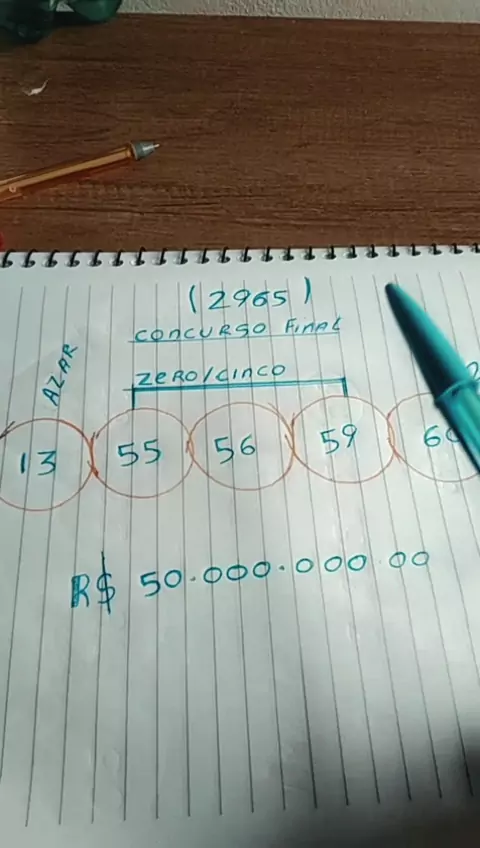 (2965)
CONCURSO FINAL
AZAR
ZERO/CINCO
13 55 56 59
R$ 50.000.000.00